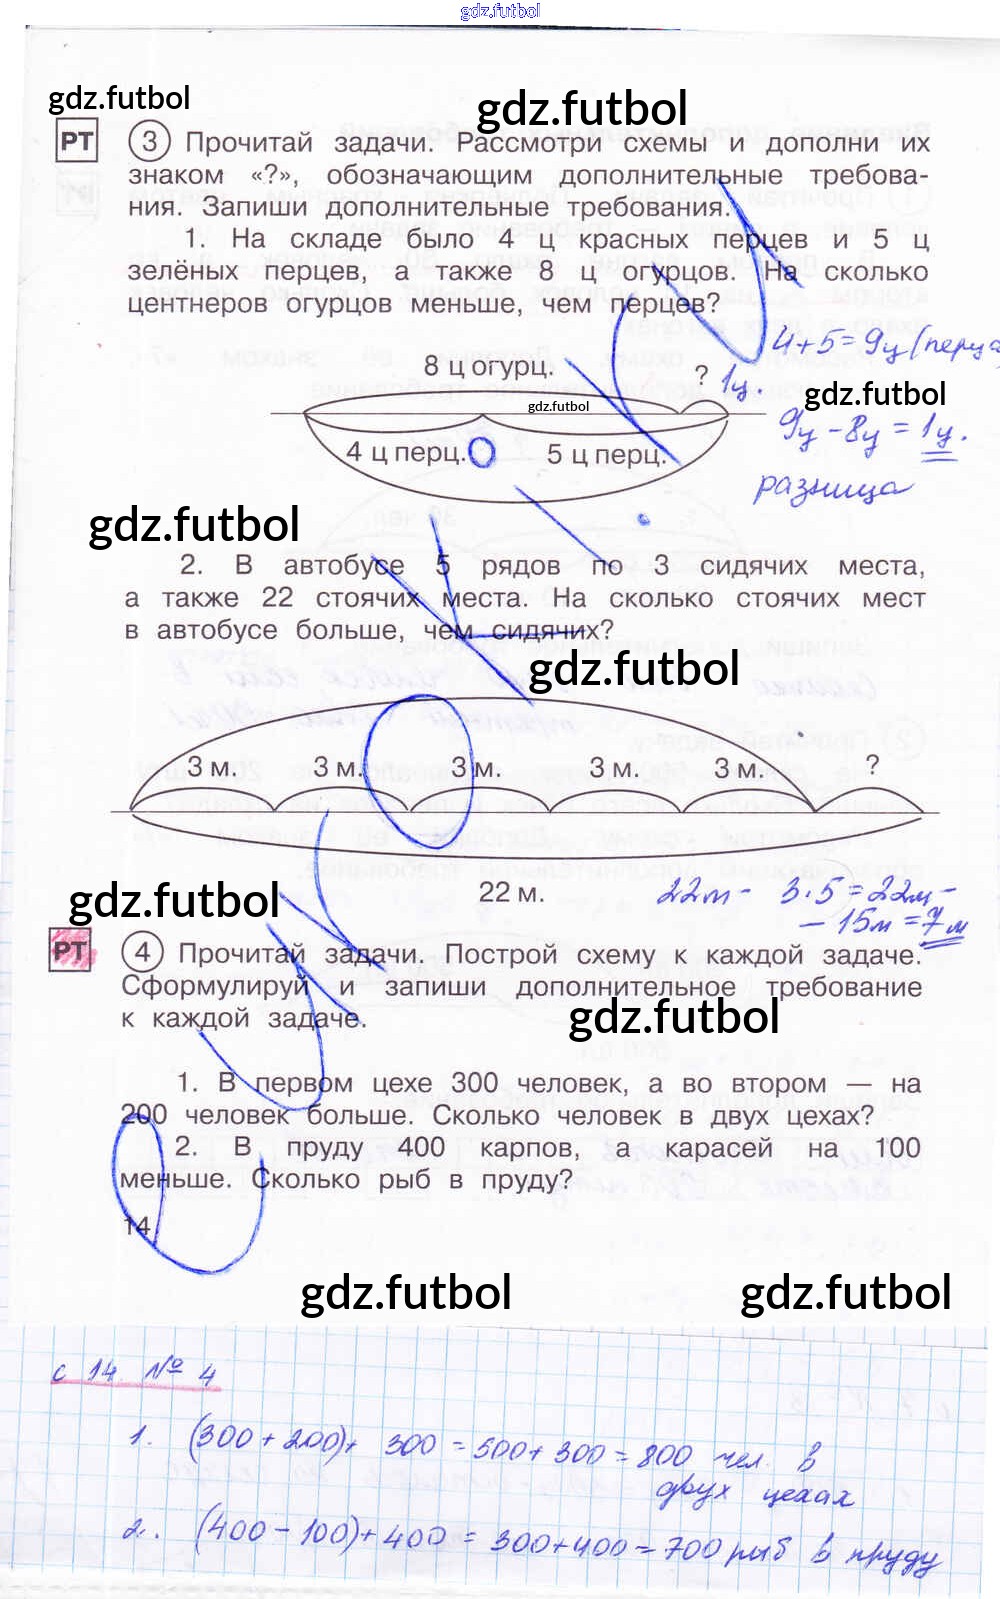 gdz.futbol
gdz.futbol
gdz.futbol
РТ 3 Прочитай задачи. Рассмотри схемы и дополни их
знаком «?», обозначающим дополнительные требова-
ния. Запиши дополнительные требования.
1. На складе было 4 ц красных перцев и 5 ц
зелёных перцев, а также 8 ц огурцов. На сколько
центнеров огурцов меньше, чем перцев?
4+5=9ц (перца
8 ц огурц.
? 1ц.
gdz.futbol
gdz.futbol
9ц - 8ц = 1ц.
4 ц перц.
5 ц перц.
разница
gdz.futbol
2. В автобусе 5 рядов по 3 сидячих места,
а также 22 стоячих места. На сколько стоячих мест
в автобусе больше, чем сидячих?
gdz.futbol
3 м. 3 м. 3 м. 3 м. 3 м. ?
22 м.
22м - 3·5 = 22м -
- 15м = 7м
gdz.futbol
РТ 4 Прочитай задачи. Построй схему к каждой задаче.
Сформулируй и запиши дополнительное требование
к каждой задаче.
gdz.futbol
1. В первом цехе 300 человек, а во втором — на
200 человек больше. Сколько человек в двух цехах?
2. В пруду 400 карпов, а карасей на 100
меньше. Сколько рыб в пруду?
14
gdz.futbol
gdz.futbol
с 14 № 4
1. (300 + 200) + 300 = 500 + 300 = 800 чел. в
двух цехах
2. (400 - 100) + 400 = 300 + 400 = 700 рыб в пруду